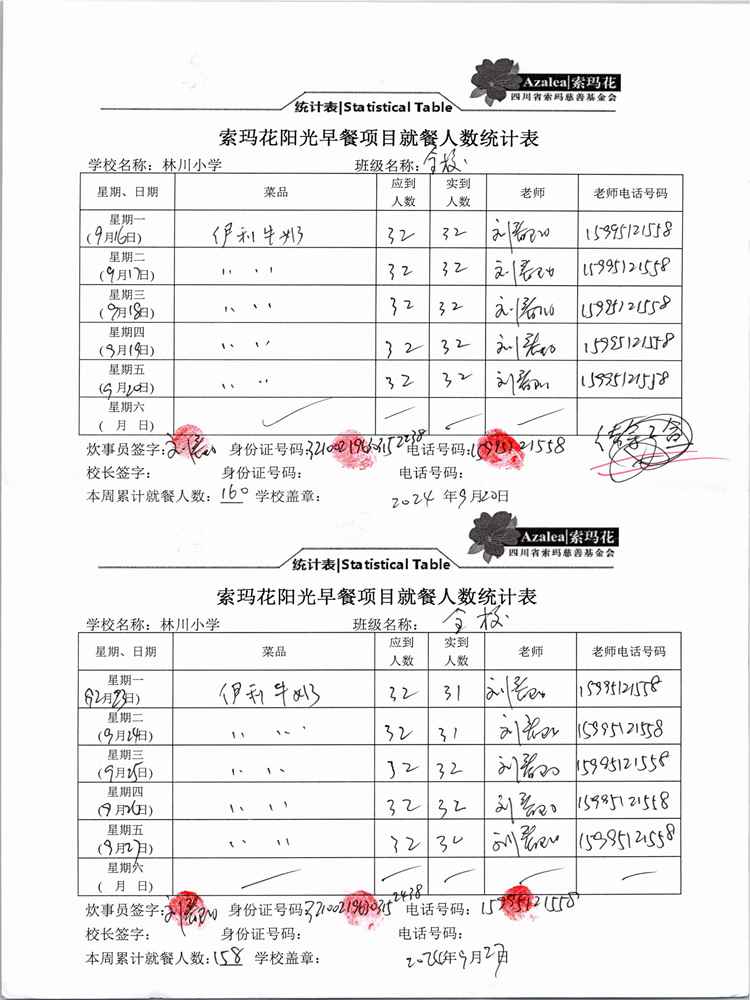 Azalea|索玛花
四川省索玛慈善基金会
统计表|Statistical Table
索玛花阳光早餐项目就餐人数统计表
学校名称：林川小学 班级名称：全校
星期、日期 菜品 应到人数 实到人数 老师 老师电话号码
星期一 (9月16日) 伊利牛奶 32 32 15995121558
星期二 (9月17日) 〃 〃 32 32 15995121558
星期三 (9月18日) 〃 〃 32 32 15995121558
星期四 (9月19日) 〃 〃 32 32 15995121558
星期五 (9月20日) 〃 〃 32 32 15995121558
星期六 ( 月 日)
炊事员签字： 身份证号码： 电话号码：15995121558
校长签字： 身份证号码： 电话号码：
本周累计就餐人数：160 学校盖章： 2024年9月20日
Azalea|索玛花
四川省索玛慈善基金会
统计表|Statistical Table
索玛花阳光早餐项目就餐人数统计表
学校名称：林川小学 班级名称：全校
星期、日期 菜品 应到人数 实到人数 老师 老师电话号码
星期一 月23日) 伊利牛奶 32 31 15995121558
星期二 (9月24日) 〃 〃 32 31 15995121558
星期三 (9月25日) 〃 〃 32 32 15995121558
星期四 (9月26日) 〃 〃 32 32 15995121558
星期五 (9月27日) 〃 〃 32 32 15995121558
星期六 ( 月 日)
炊事员签字： 身份证号码： 电话号码：15995121558
校长签字： 身份证号码： 电话号码：
本周累计就餐人数：158 学校盖章： 2024年9月27日